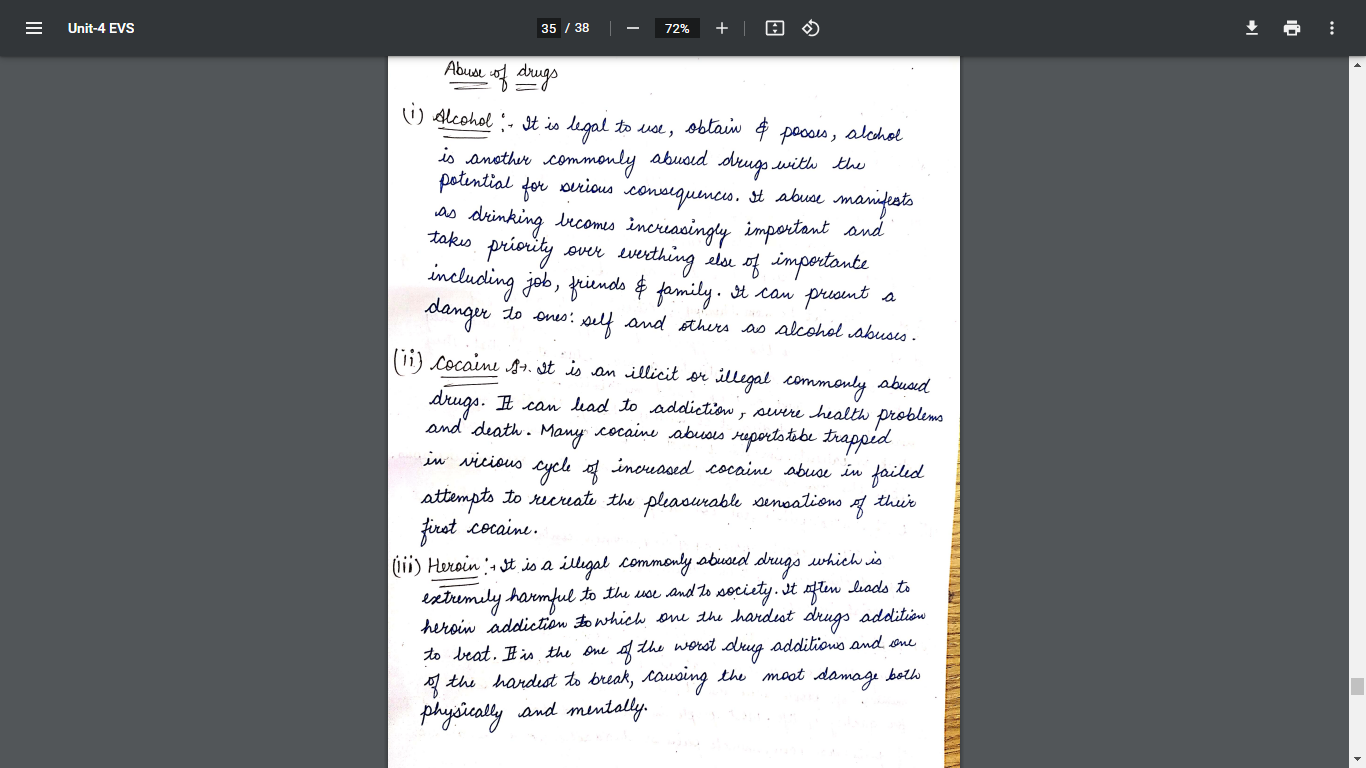 Unit-4 EVS
35 / 38
72%
Abuse of drugs
(i) Alcohol :- It is legal to use, obtain & posses, alcohol
is another commonly abused drugs with the
potential for serious consequences. It abuse manifests
as drinking becomes increasingly important and
takes priority over everthing else of importante
including job, friends & family. It can present a
danger to ones: self and others as alcohol abuses.
(ii) Cocaine :→. It is an illicit or illegal commonly abused
drugs. It can lead to addiction, severe health problems
and death. Many cocaine abuses reports to be trapped
in vicious cycle of increased cocaine abuse in failed
attempts to recreate the pleasurable sensations of their
first cocaine.
(iii) Heroin :→ It is a illegal commonly abused drugs which is
extremely harmful to the use and to society. It often leads to
heroin addiction to which one the hardest drugs addition
to beat. It is the one of the worst drug additions and one
of the hardest to break, causing the most damage both
physically and mentally.